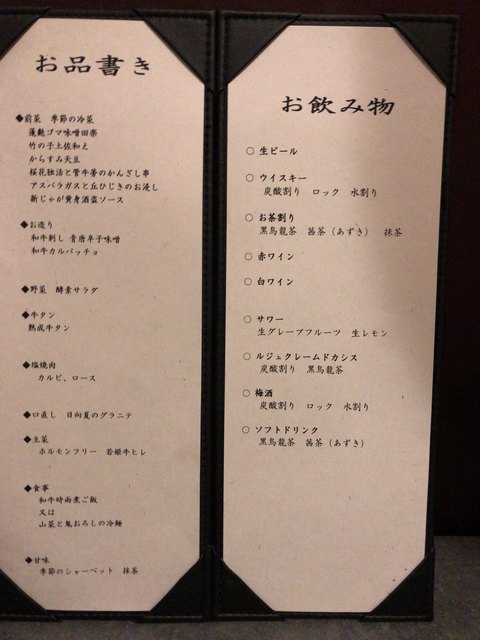 お品書き
◆前菜 季節の冷菜
蓬麩ゴマ味噌田楽
竹の子土佐和え
からすみ天豆
桜花独活と管牛蒡のかんざし串
アスパラガスと丘ひじきのお浸し
新じゃが黄身酒盗ソース
◆お造り
和牛刺し 青唐辛子味噌
和牛カルパッチョ
◆野菜 酵素サラダ
◆牛タン
熟成牛タン
◆塩焼肉
カルビ、ロース
◆口直し 日向夏のグラニテ
◆主菜
ホルモンフリー 若姫牛ヒレ
◆食事
和牛時雨煮ご飯
又は
山菜と鬼おろしの冷麺
◆甘味
季節のシャーベット 抹茶
お飲み物
○ 生ビール
○ ウイスキー
炭酸割り ロック 水割り
○ お茶割り
黒烏龍茶 茜茶（あずき） 抹茶
○ 赤ワイン
○ 白ワイン
○ サワー
生グレープフルーツ 生レモン
○ ルジェクレームドカシス
炭酸割り 黒烏龍茶
○ 梅酒
炭酸割り ロック 水割り
○ ソフトドリンク
黒烏龍茶 茜茶（あずき）